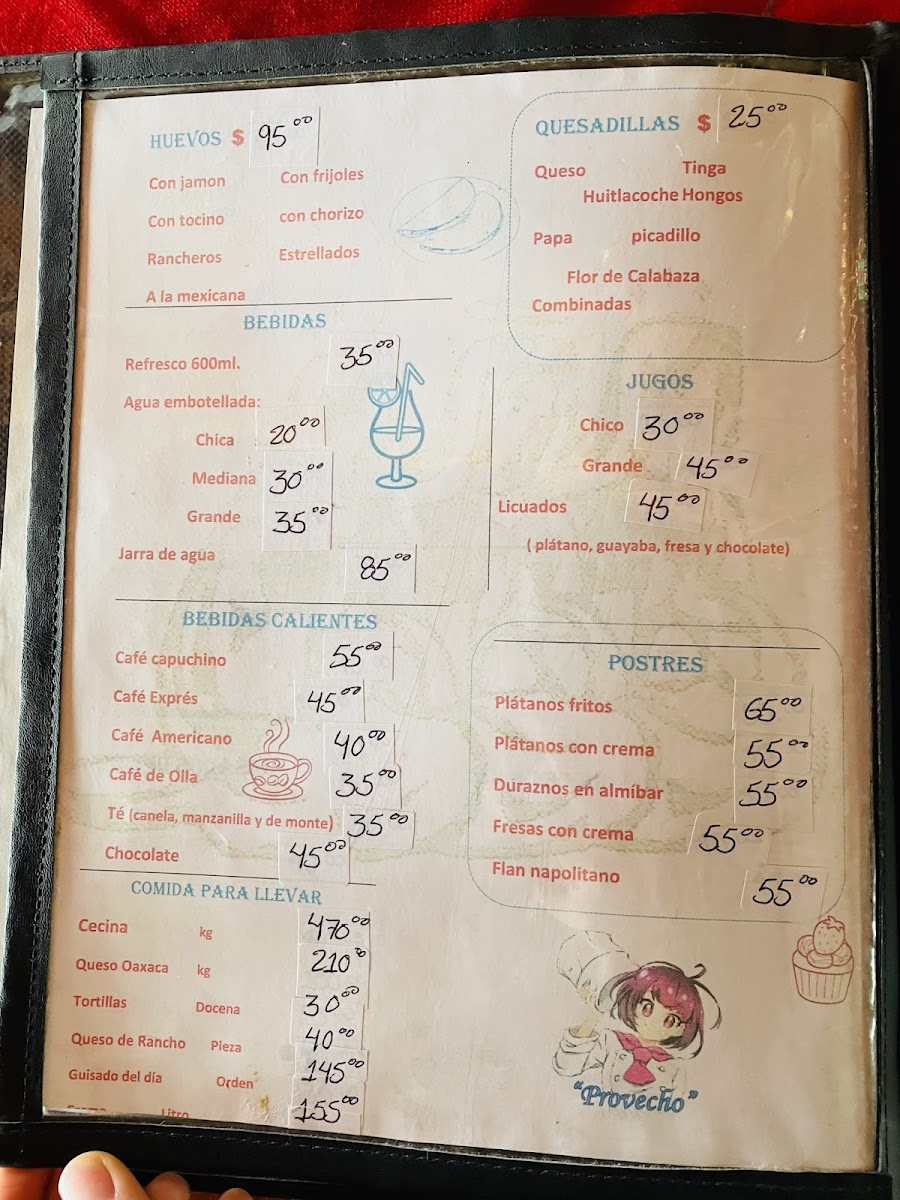 HUEVOS $ 95⁰⁰
Con jamon Con frijoles
Con tocino con chorizo
Rancheros Estrellados
A la mexicana
QUESADILLAS $ 25⁰⁰
Queso Tinga
Huitlacoche Hongos
Papa picadillo
Flor de Calabaza
Combinadas
BEBIDAS
Refresco 600ml. 35⁰⁰
Agua embotellada:
Chica 20⁰⁰
Mediana 30⁰⁰
Grande 35⁰⁰
Jarra de agua 85⁰⁰
JUGOS
Chico 30⁰⁰
Grande 45⁰⁰
Licuados 45⁰⁰
( plátano, guayaba, fresa y chocolate)
BEBIDAS CALIENTES
Café capuchino 55⁰⁰
Café Exprés 45⁰⁰
Café Americano 40⁰⁰
Café de Olla 35⁰⁰
Té (canela, manzanilla y de monte) 35⁰⁰
Chocolate 45⁰⁰
POSTRES
Plátanos fritos 65⁰⁰
Plátanos con crema 55⁰⁰
Duraznos en almíbar 55⁰⁰
Fresas con crema 55⁰⁰
Flan napolitano 55⁰⁰
COMIDA PARA LLEVAR
Cecina kg 470⁰⁰
Queso Oaxaca kg 210⁰⁰
Tortillas Docena 30⁰⁰
Queso de Rancho Pieza 40⁰⁰
Guisado del día Orden 145⁰⁰
Crema Litro 155⁰⁰
"Provecho"